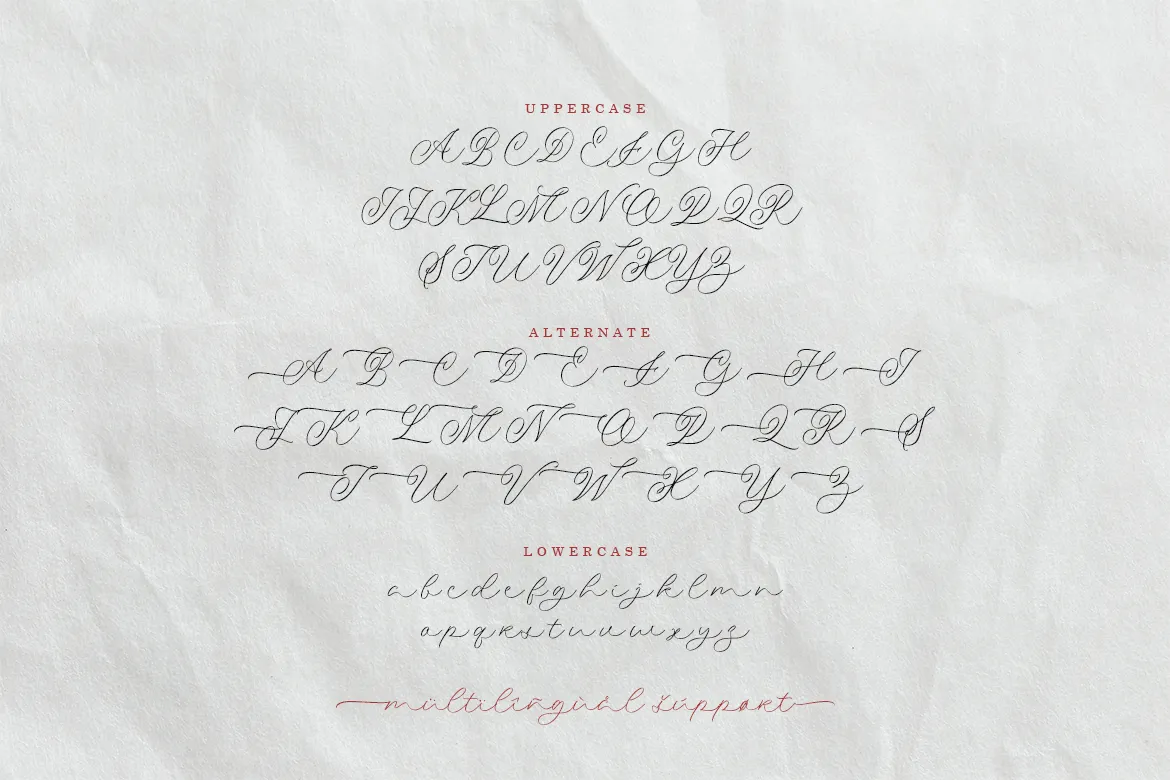 UPPERCASE
A B C D E F G H
I J K L M N O P Q R
S T U V W X Y Z
ALTERNATE
A B C D E F G H I
J K L M N O P Q R S
T U V W X Y Z
LOWERCASE
a b c d e f g h i j k l m n
o p q r s t u v w x y z
mültilîñgùál šúppørt